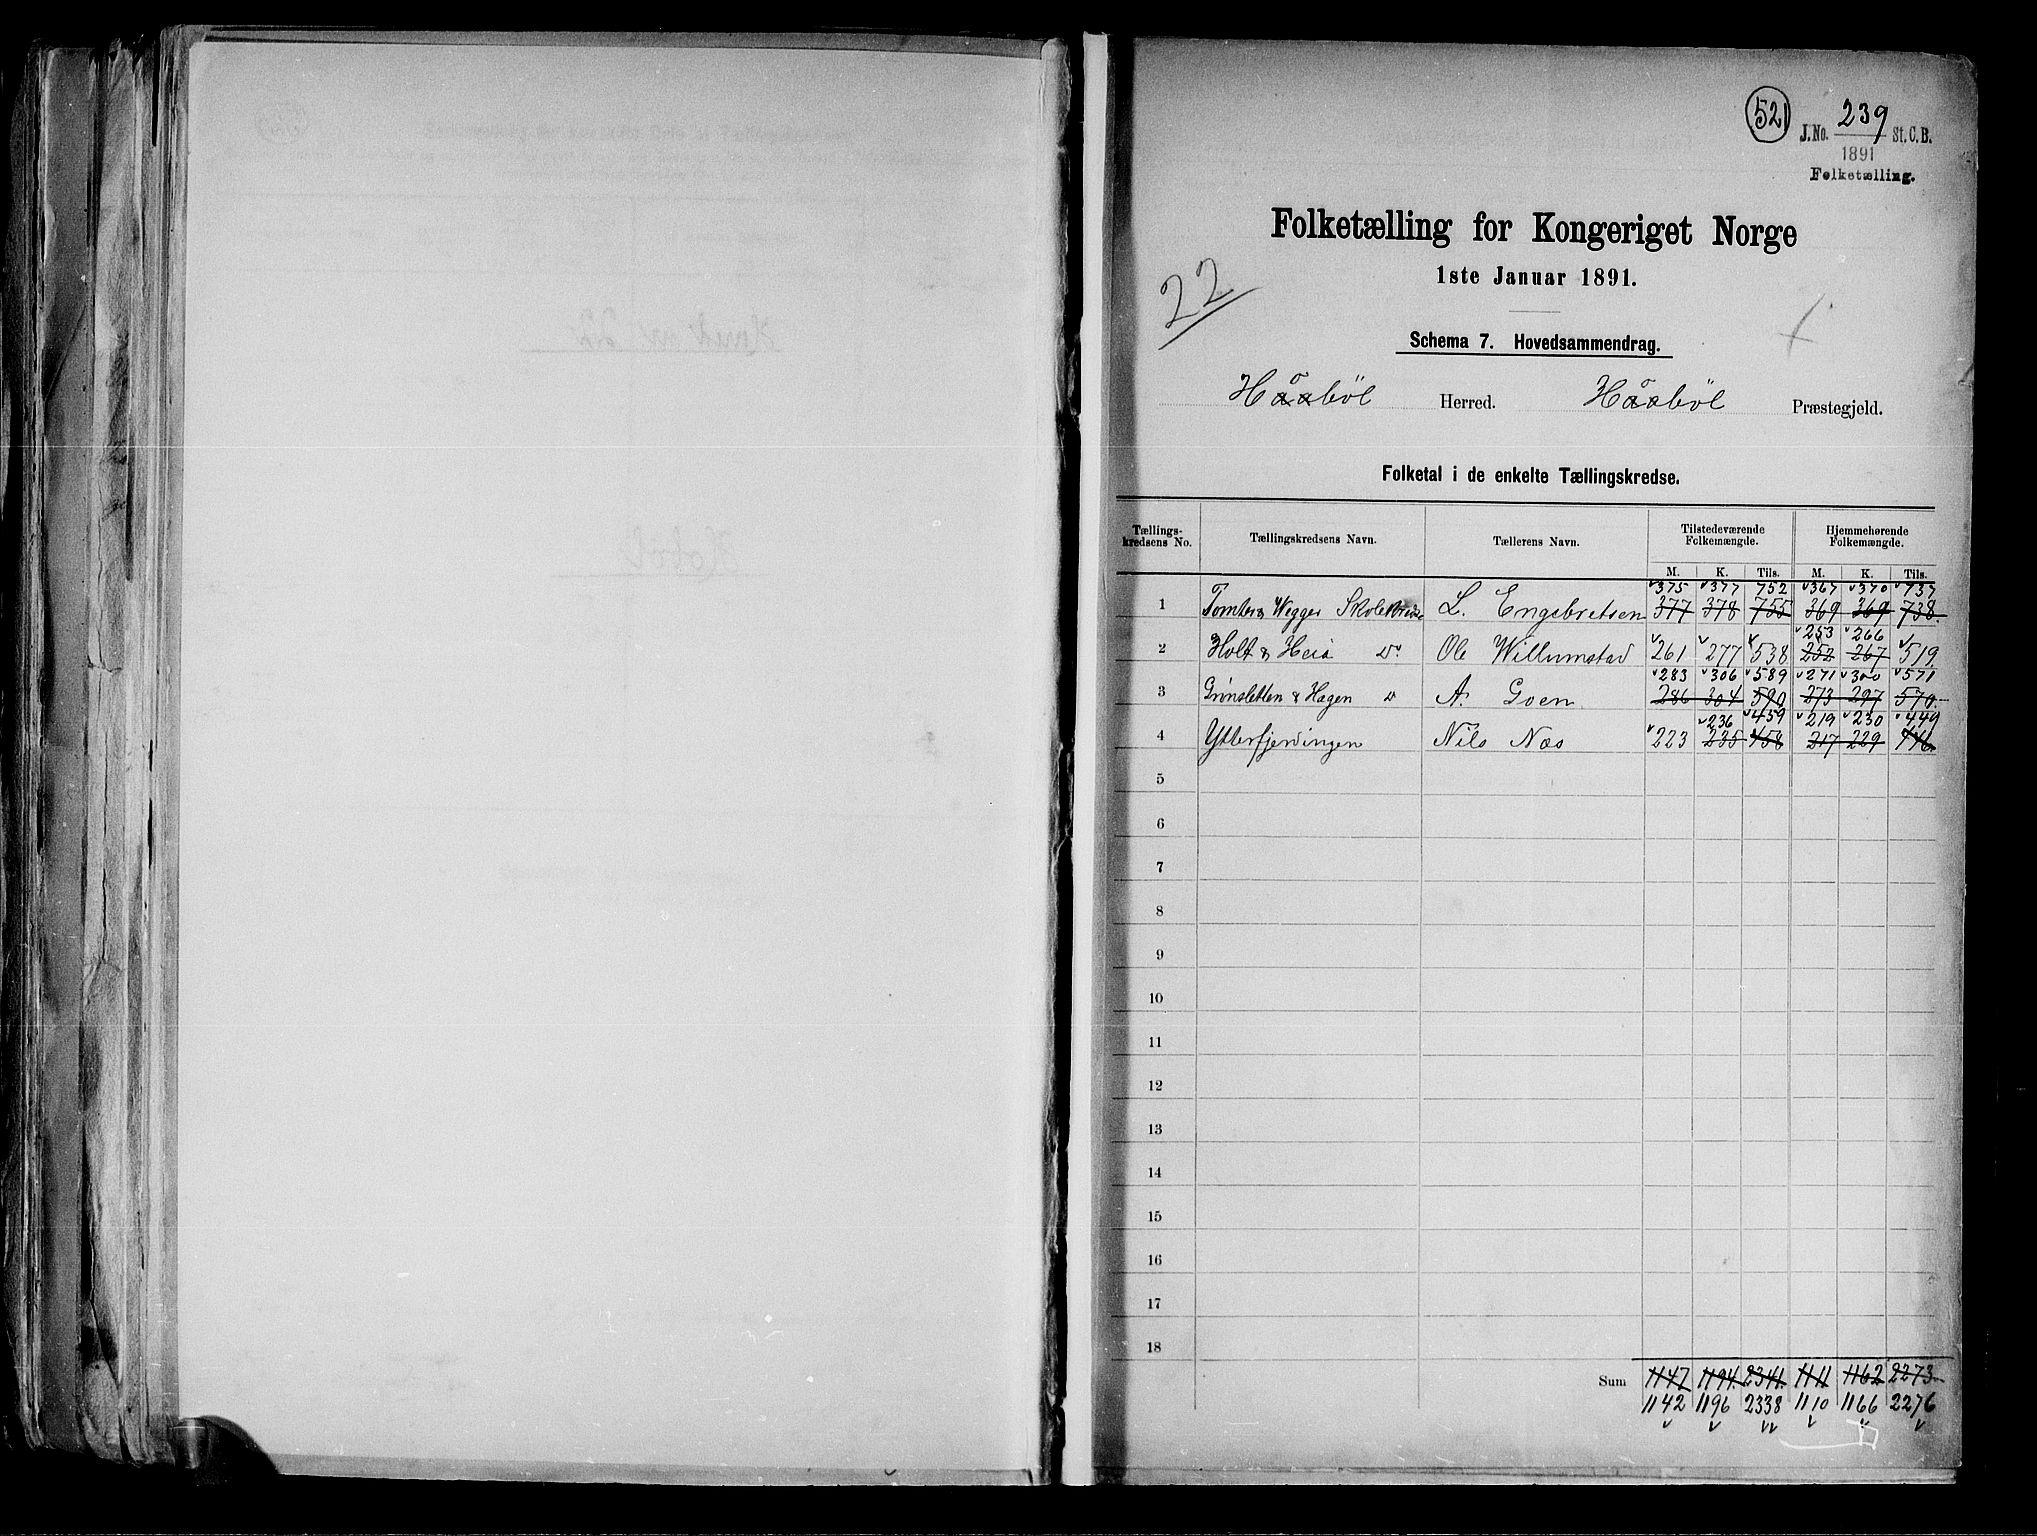 521
J.No. 239 St. C. B.
1891
Folketælling.
Folketælling for Kongeriget Norge
1ste Januar 1891.
22
Schema 7. Hovedsammendrag.
Haabøl Herred. Haabøl Præstegjeld.
Folketal i de enkelte Tællingskredse.
Tællings-kredsens No. Tællingskredsens Navn. Tællerens Navn. Tilstedeværende Folkemængde. Hjemmehørende Folkemængde.
M. K. Tils. M. K. Tils.
375 377 752 367 370 737
1 Tomter & Wegger Skolekreds L. Engebretsen 377 378 755 369 369 738
253 266
2 Holt & Heia Do Ole Willumstad 261 277 538 252 267 519
283 306 589 271 300 571
3 Grønsletten & Hagen Do A. Goen 286 304 590 273 297 570
236 459 219 230 449
4 Ytterfjerdingen Nils Næs 223 235 458 217 229 446
5
6
7
8
9
10
11
12
13
14
15
16
17
18
Sum 1147 1194 2341 1111 1162 2273
1142 1196 2338 1110 1166 2276